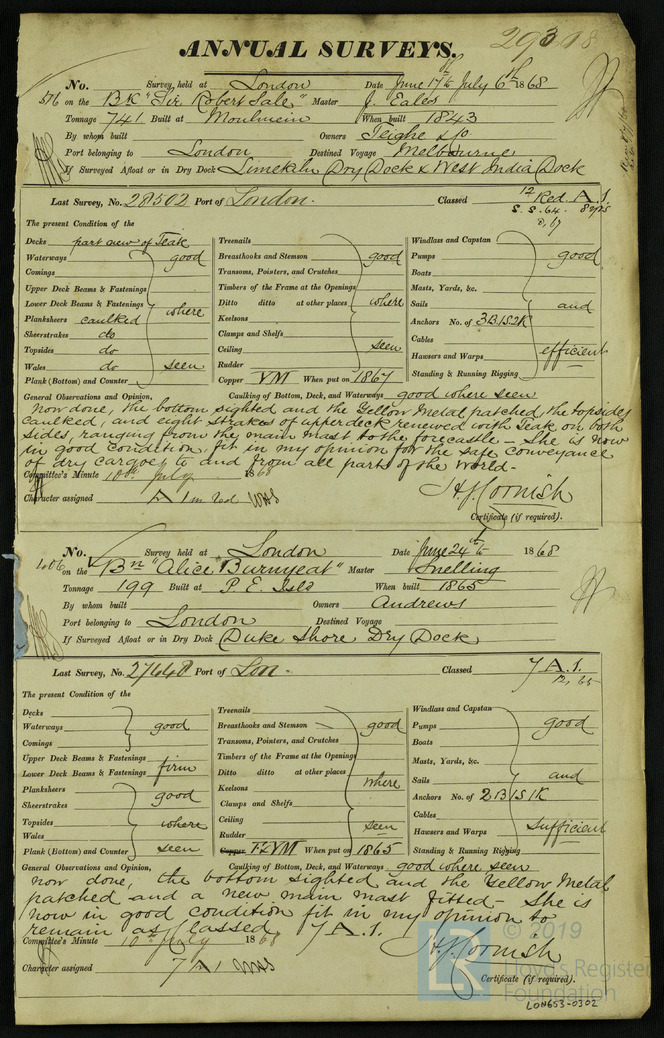 29308
ANNUAL SURVEYS.
No. 576 Survey, held at London Date June 17th July 6th 1868
on the Bk "Sir Robert Sale" Master J. Eales
Tonnage 741 Built at Moulmein When built 1843
By whom built Owners Teighe & Co
Port belonging to London Destined Voyage Melbourne
If Surveyed Afloat or in Dry Dock Limekiln Dry Dock & West India Dock
Last Survey, No. 28502 Port of London. Classed 12 Red A.1.
S.S. 64. 8 yrs
8, 67
The present Condition of the
Decks part new of Teak
Waterways good
Comings
Upper Deck Beams & Fastenings
Lower Deck Beams & Fastenings where
Planksheers caulked
Sheerstrakes do
Topsides do
Wales do seen
Plank (Bottom) and Counter
Treenails
Breasthooks and Stemson good
Transoms, Pointers, and Crutches
Timbers of the Frame at the Openings
Ditto ditto at other places where
Keelsons
Clamps and Shelfs
Ceiling seen
Rudder
Copper YM When put on 1867
Windlass and Capstan
Pumps good
Boats
Masts, Yards, &c.
Sails and
Anchors No. of 3B1S2K
Cables
Hawsers and Warps efficient
Standing & Running Rigging
General Observations and Opinion, Caulking of Bottom, Deck, and Waterways good where seen
Now done, the bottom sighted and the Yellow Metal patched the topsides
caulked, and eight strakes of upper deck renewed with Teak on both
sides, ranging from the main mast to the forecastle – She is now
in good condition, fit in my opinion for the safe conveyance
of dry cargoes to and from all parts of the World.–
Committee's Minute 10th July 1868
Character assigned A 1 in red
H.J. Cornish
Certificate (if required).
No. 406 Survey held at London Date June 24th 1868
on the Bn "Alice Burnyeat" Master Snelling
Tonnage 199 Built at P. E. Isld When built 1865
By whom built Owners Andrews
Port belonging to London Destined Voyage
If Surveyed Afloat or in Dry Dock Duke Shore Dry Dock
Last Survey, No. 27648 Port of Lon. Classed 7 A.1.
12, 65
The present Condition of the
Decks
Waterways good
Comings
Upper Deck Beams & Fastenings firm
Lower Deck Beams & Fastenings
Planksheers good
Sheerstrakes
Topsides where
Wales
Plank (Bottom) and Counter seen
Treenails
Breasthooks and Stemson good
Transoms, Pointers, and Crutches
Timbers of the Frame at the Openings
Ditto ditto at other places
Keelsons where
Clamps and Shelfs
Ceiling seen
Rudder
Copper F&YM When put on 1865
Windlass and Capstan
Pumps good
Boats
Masts, Yards, &c.
Sails and
Anchors No. of 2B1S1K
Cables
Hawsers and Warps sufficient
Standing & Running Rigging
General Observations and Opinion, Caulking of Bottom, Deck, and Waterways good where seen
now done, the bottom sighted and the Yellow Metal
patched and a new main mast fitted – She is
now in good condition fit in my opinion to
remain as Classed 7 A.1.
Committee's Minute 10th July 1868
Character assigned 7 A 1
H.J. Cornish
Certificate (if required).
© 2019
Lloyd's Register
Foundation
LON653-0302